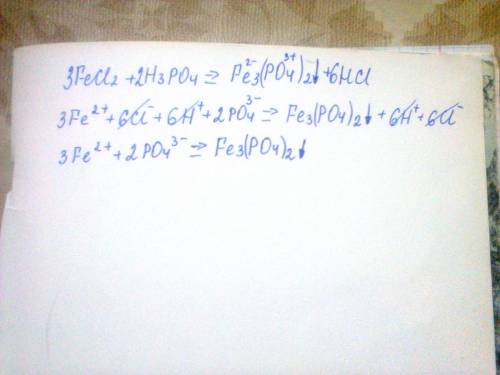 3FeCl₂ + 2H₃PO₄ ⇄ Fe₃²⁻(PO₄³⁺)₂↓ + 6HCl
3Fe²⁺ + 6Cl⁻ + 6H⁺ + 2PO₄³⁻ ⇄ Fe₃(PO₄)₂↓ + 6H⁺ + 6Cl⁻
3Fe²⁺ + 2PO₄³⁻ ⇄ Fe₃(PO₄)₂↓